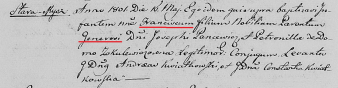 Stara-Mysz. Anno 1801 Die 12 Maj Ego idem qui supra baptisavi in-
fantem noie Franciscum filium Nobilium Parentum
Generosi Dni Josephi Pancewicz et Petronille de do-
mo Zakulewiczowa Legitimor: Conjugum Levantes
G Dnus Andreas Kwiatkowski, et G Dna Constantia Kwiat-
kowska